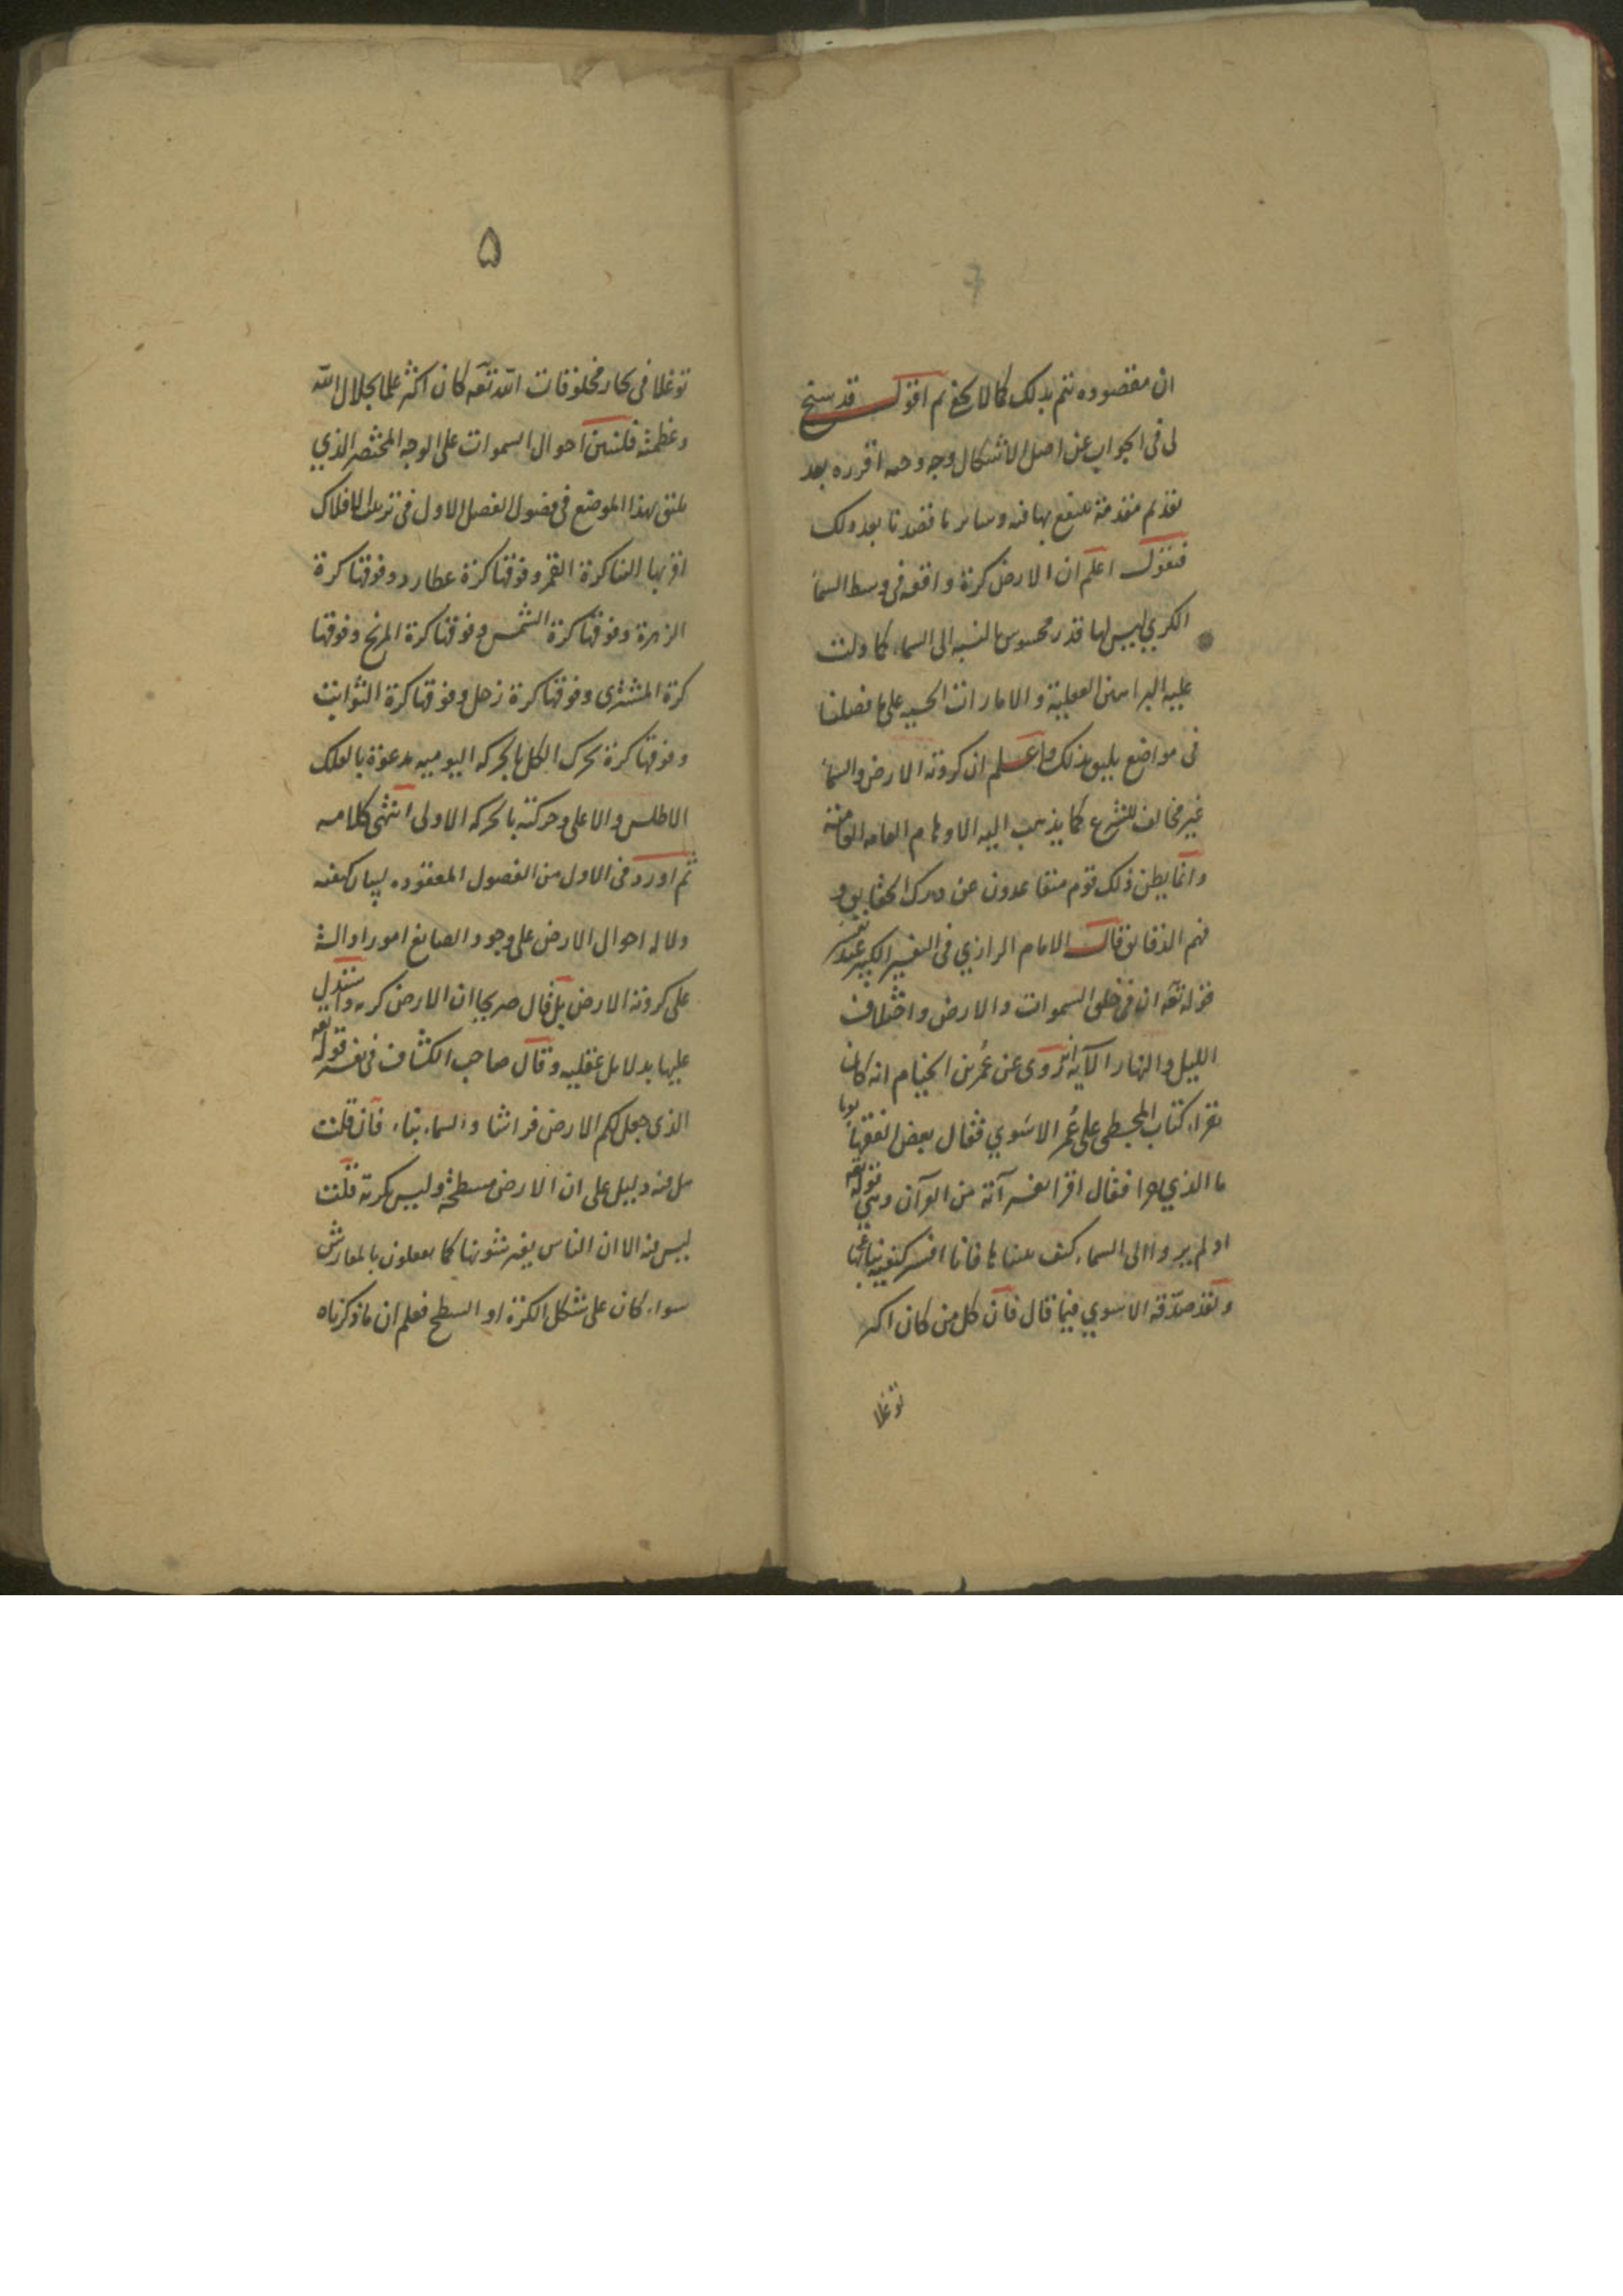 ان مقصوده يتم بذلك كما لا يخفى ثم اقول قد سنح
لى فى الجواب عن اصل الاشكال وجه وجيه اقرره بعد
تقديم مقدمة ينتفع بها فيه وسائر ما قصدنا بعد ذلك
فنقول اعلم ان الارض كرة واقعه فى وسط السما
الكرى ليس لها قدر محسوس بالنسبه الى السماء كما دلت
عليه البراهين العقلية والامارات الحسيه على ما فصلنا
فى مواضع يليق بذلك واعلم ان كروية الارض والسما
غير مخالف للشرع كما يذهب اليه الاوهام العامه
وانما يظن ذلك قوم متقاعدون عن درك الحقايق و
فهم الدقايق قال الامام الرازي فى التفسير الكبير عند تفسير
قوله تعه ان فى خلق السموات والارض واختلاف
الليل والنهار الآيه انه روى عن عُمر بن الخيام انه كان
يقراء كتاب المجسطى على عُمر الاسَوي فقال بعض الفقها يوما
ما الذي تقرا فقال اقرا تفسير آية من القرآن وهي قوله تعه
اولم يروا الى السماء كيف بنيناها فانا افسر كيفية بنائها
ولقد صدّق الاسوي فيما قال فان كل من كان اكثر
توغلا
۵
توغلا فى بحار مخلوقات الله تعه كان اكثر علما بجلال الله
وعظمته فلنبين احوال السموات على الوجه المختصر الذي
يليق بهذا الموضع فى فصول الفصل الاول فى ترتيب الافلاك
اقربها الينا كرة القمر وفوقها كرة عطارد وفوقها كرة
الزهرة وفوقها كرة الشمس وفوقها كرة المريخ وفوقها
كرة المشترى وفوقها كرة زحل وفوقها كرة الثوابت
وفوقها كرة تحرك الكل بالحركه اليوميه مدعوة بالفلك
الاطلس والاعلى وحركته بالحركه الاولى انتهى كلامه
ثم اورد فى الاول من الفصول المعقوده لبيان كيفيه
دلاله احوال الارض على وجود الصانع امورا دالة
على كروية الارض بل قال صريحا ان الارض كره واستدل
عليها بدلايل عقليه وقال صاحب الكشاف فى تفسير قوله تعه
الذى جعل لكم الارض فراشا والسماء بناء فان قلت
هل فيه دليل على ان الارض مسطحة وليس بكرية قلت
ليس فيه الا ان الناس يفترشونها كما يفعلون بالمفارش
سواء كان على شكل الكرة او السطح فعلم ان ما ذكرناه